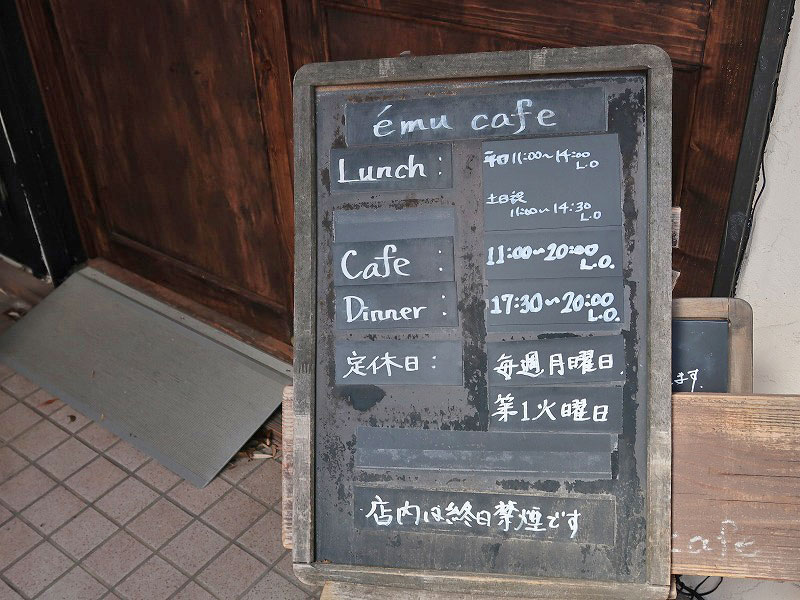 ému cafe
Lunch: 平日11:00~14:00 L.O
土日祝 11:00~14:30 L.O
Cafe : 11:00~20:00 L.O.
Dinner : 17:30~20:00 L.O.
定休日: 毎週月曜日.
第1火曜日
店内は終日禁煙です
ます.
cafe